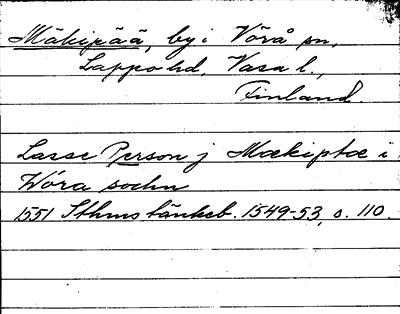 Mäkipää, by i Vörå sn,
Lappo hd, Vasa l.,
Finland.
Lasse Person j Mækiptæ i
Wöra sochn
1551 Sthms tänkeb. 1549-53, s. 110.